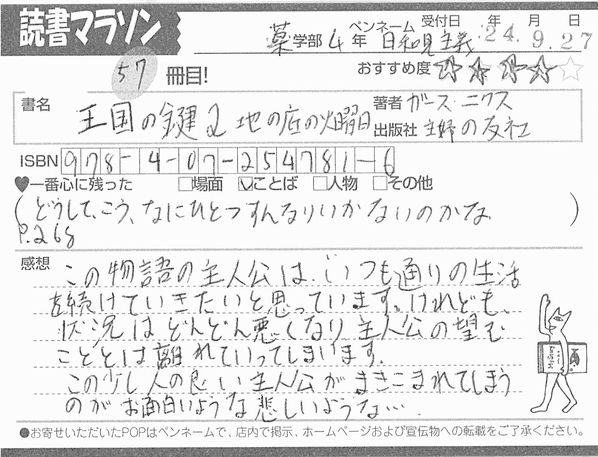 読書マラソン
薬学部4年 ペンネーム 日和見主義 受付日 24年9月27日
57冊目!
おすすめ度 ★★★★☆
書名 王国の鍵2 地の底の火曜日
著者 ガース・ニクス
出版社 主婦の友社
ISBN 978-4-07-254781-6
♥一番心に残った □場面 ☑ことば □人物 □その他
(どうして、こう、なにひとつすんなりいかないのかな)
P.268
感想
この物語の主人公は、いつも通りの生活
を続けていきたいと思っています。けれども、
状況はどんどん悪くなり主人公の望む
こととは離れていってしまいます。
この少し人の良い主人公がまきこまれてしまう
のがお面白いような悲しいような…
●お寄せいただいたPOPはペンネームで、店内で掲示、ホームページおよび宣伝物への転載をご了承ください。